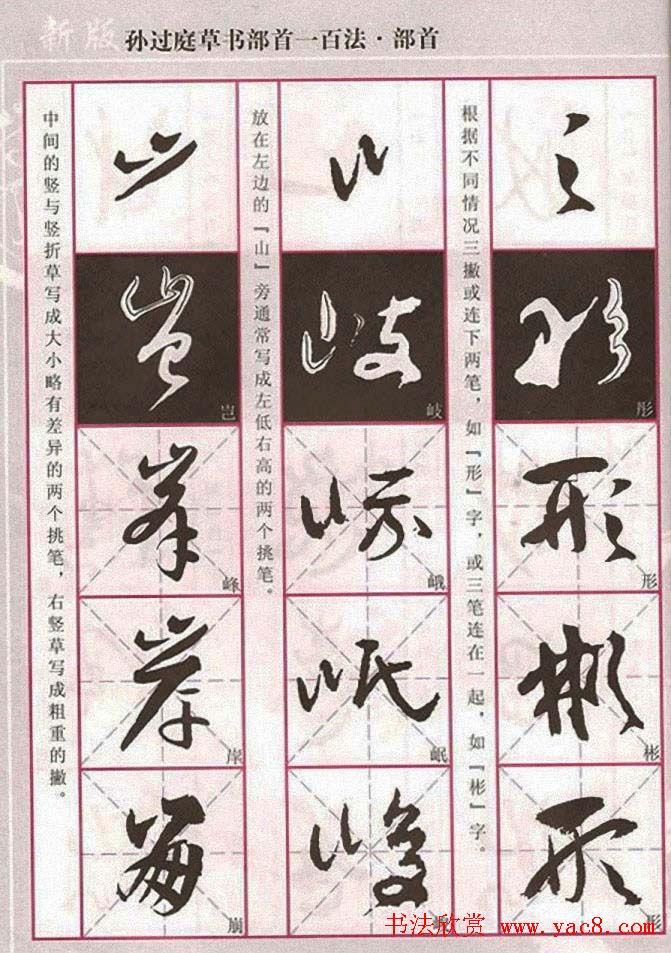 新版 孙过庭草书部首一百法·部首
根据不同情况三撇或连下两笔，如『形』字，或三笔连在一起，如『彬』字。
彤
形
彬
形
放在左边的『山』旁通常写成左低右高的两个挑笔。
岐
峨
岷
中间的竖与竖折草写成大小略有差异的两个挑笔，右竖草写成粗重的撇。
岂
峰
岸
崩
书法欣赏
www.yac8.com